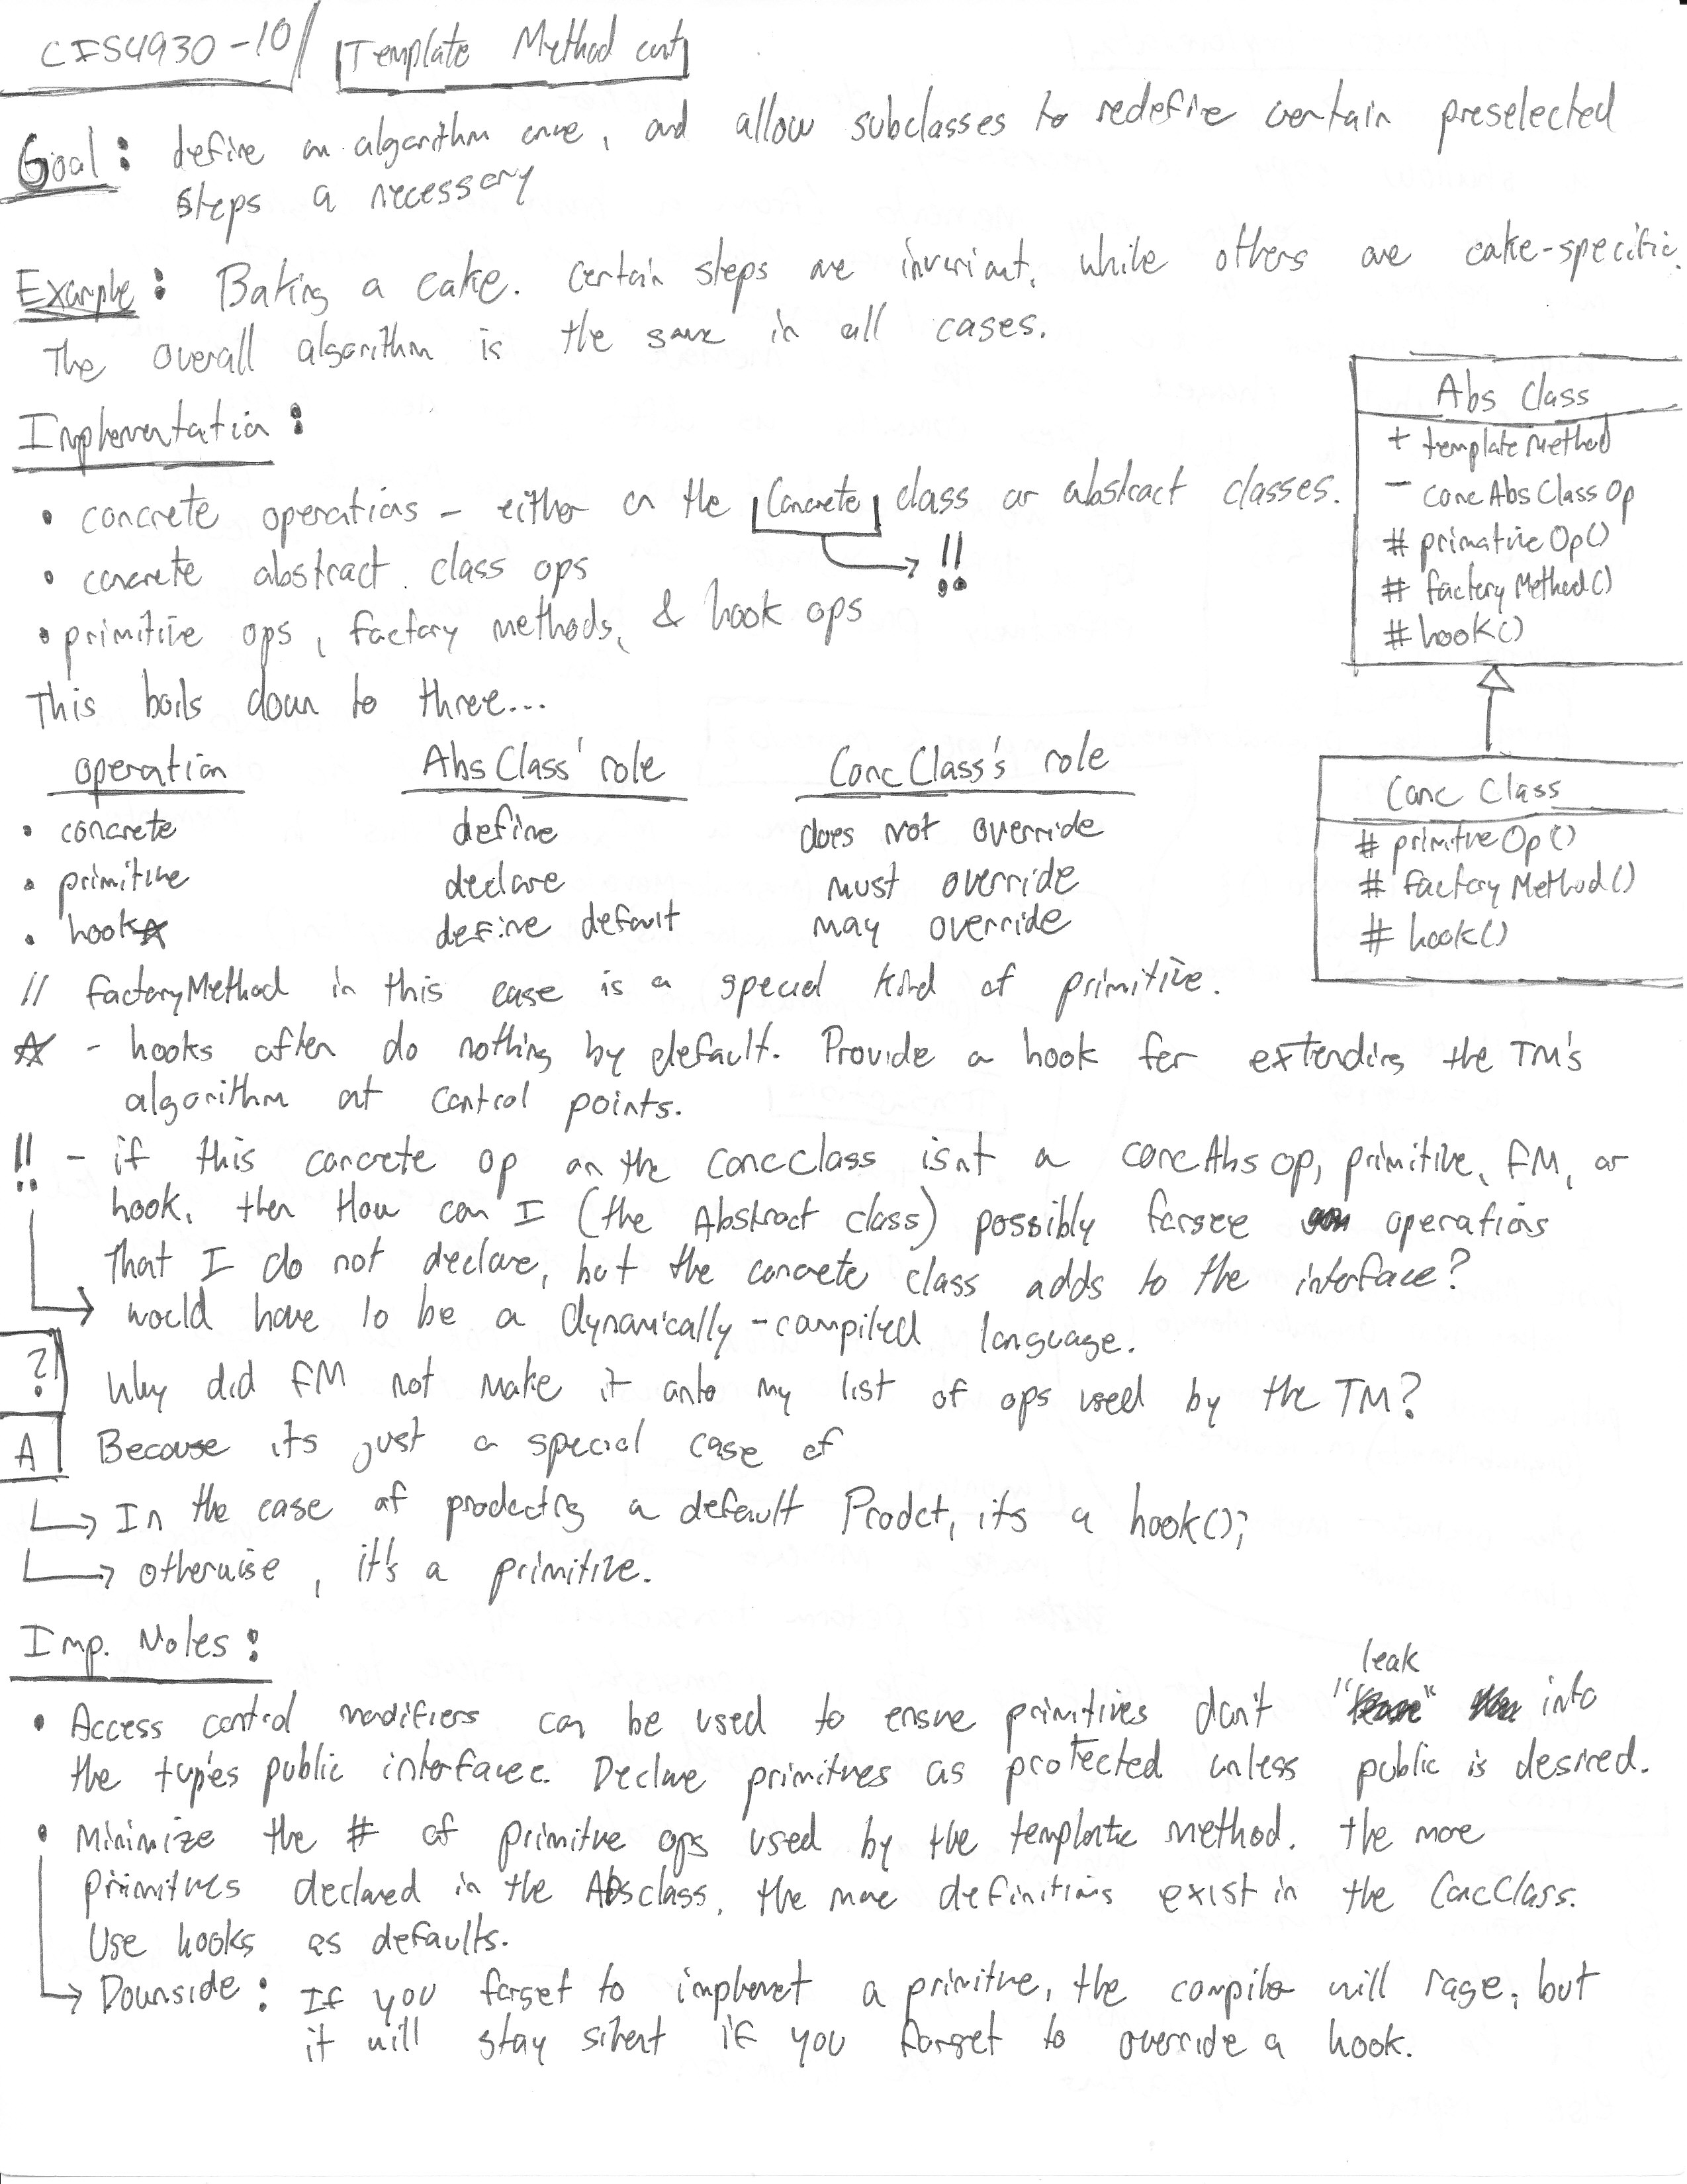 CIS4930-10 Template Method cont
Goal: define an algorithm once, and allow subclasses to redefine certain preselected
steps a necessary
Example: Baking a cake. Certain steps are invariant, while others are cake-specific.
The overall algorithm is the same in all cases.
Implementation:
• concrete operations - either on the Concrete class or abstract classes.
!!
• concrete abstract class ops
• primitive ops, factory methods, & hook ops
Abs Class
+ templateMethod
- concAbsClassOp
# primativeOp()
# factoryMethod()
# hook()
Conc Class
# primitveOp()
# factoryMethod()
# hook()
This boils down to three...
operation AbsClass' role ConcClass's role
• concrete define does not override
• primitive declare must override
• hook☆ define default may override
// factoryMethod in this case is a special kind of primitive.
☆ - hooks often do nothing by default. Provide a hook for extending the TM's
algorithm at control points.
!! - if this concrete op on the ConcClass isnt a concAbs op, primitive, FM, or
hook, then How can I (the Abstract class) possibly forsee operations
that I do not declare, but the concrete class adds to the interface?
→ would have to be a dynamically-compiled language.
? Why did FM not make it onto my list of ops used by the TM?
A Because its just a special case of
→ In the case of producting a default Prodct, its a hook();
→ otherwise, it's a primitive.
Imp. Notes:
• Access control modifiers can be used to ensure primitives don't "leak" into
the type's public interface. Declare primitives as protected unless public is desired.
• Minimize the # of primitive ops used by the template method. The more
primitives declared in the Absclass, the more definitions exist in the ConcClass.
Use hooks as defaults.
→ Downside: If you forget to implement a primitive, the compiler will rage, but
it will stay silent if you forget to override a hook.